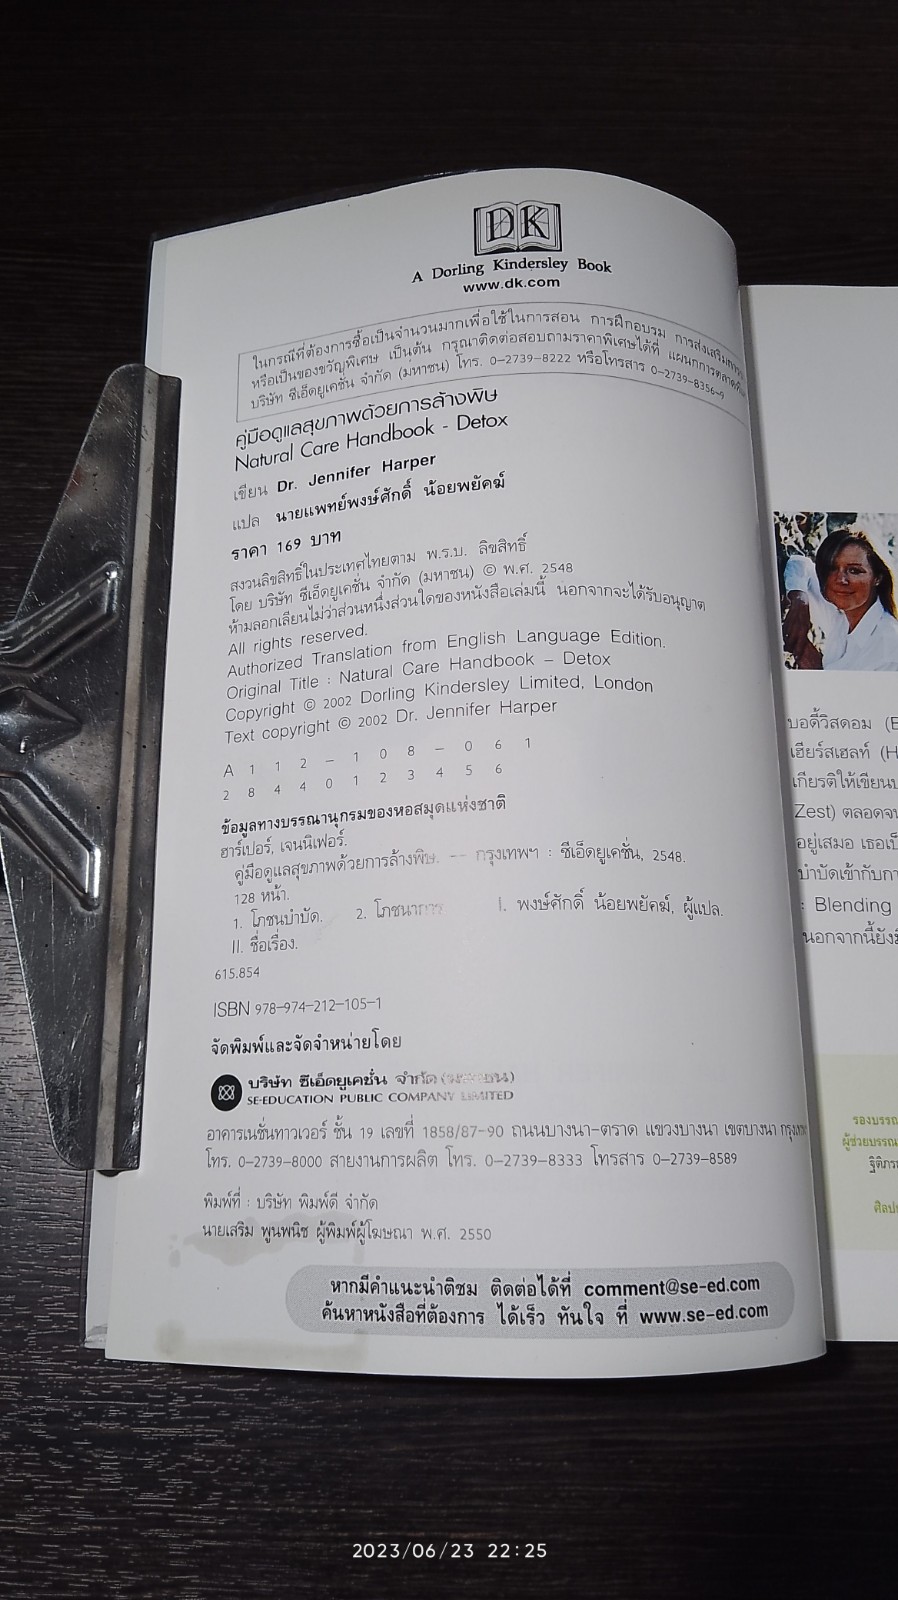 DK
A Dorling Kindersley Book
www.dk.com
ในกรณีที่ต้องการซื้อเป็นจำนวนมากเพื่อใช้ในการสอน การฝึกอบรม การส่งเสริม
หรือเป็นของขวัญพิเศษ เป็นต้น กรุณาติดต่อสอบถามราคาพิเศษได้ที่ แผนกการตลาด
บริษัท ซีเอ็ดยูเคชั่น จำกัด (มหาชน) โทร. 0-2739-8222 หรือโทรสาร 0-2739-8356-9
คู่มือดูแลสุขภาพด้วยการล้างพิษ
Natural Care Handbook - Detox
เขียน Dr. Jennifer Harper
แปล นายแพทย์พงษ์ศักดิ์ น้อยพยัคฆ์
ราคา 169 บาท
สงวนลิขสิทธิ์ในประเทศไทยตาม พ.ร.บ. ลิขสิทธิ์
โดย บริษัท ซีเอ็ดยูเคชั่น จำกัด (มหาชน) © พ.ศ. 2548
ห้ามลอกเลียนไม่ว่าส่วนหนึ่งส่วนใดของหนังสือเล่มนี้ นอกจากจะได้รับอนุญาต
All rights reserved.
Authorized Translation from English Language Edition.
Original Title : Natural Care Handbook – Detox
Copyright © 2002 Dorling Kindersley Limited, London
Text copyright © 2002 Dr. Jennifer Harper
A 1 1 2 – 1 0 8 – 0 6 1
2 8 4 4 0 1 2 3 4 5 6
ข้อมูลทางบรรณานุกรมของหอสมุดแห่งชาติ
ฮาร์เปอร์, เจนนิเฟอร์.
คู่มือดูแลสุขภาพด้วยการล้างพิษ. -- กรุงเทพฯ : ซีเอ็ดยูเคชั่น, 2548.
128 หน้า.
1. โภชนบำบัด. 2. โภชนาการ I. พงษ์ศักดิ์ น้อยพยัคฆ์, ผู้แปล.
II. ชื่อเรื่อง.
615.854
ISBN 978-974-212-105-1
จัดพิมพ์และจัดจำหน่ายโดย
บริษัท ซีเอ็ดยูเคชั่น จำกัด (มหาชน)
SE-EDUCATION PUBLIC COMPANY LIMITED
อาคารเนชั่นทาวเวอร์ ชั้น 19 เลขที่ 1858/87-90 ถนนบางนา-ตราด แขวงบางนา เขตบางนา
โทร. 0-2739-8000 สายงานการผลิต โทร. 0-2739-8333 โทรสาร 0-2739-8589
พิมพ์ที่ : บริษัท พิมพ์ดี จำกัด
นายเสริม พูนพนิช ผู้พิมพ์ผู้โฆษณา พ.ศ. 2550
หากมีคำแนะนำติชม ติดต่อได้ที่ comment@se-ed.com
ค้นหาหนังสือที่ต้องการ ได้เร็ว ทันใจ ที่ www.se-ed.com
บอดี้วิสดอม
เฮียร์สเฮลท์
เกียรติให้เขียน
Zest) ตลอดจน
อยู่เสมอ
บำบัดเข้ากับ
: Blending
นอกจากนี้ยัง
2023/06/23 22:25